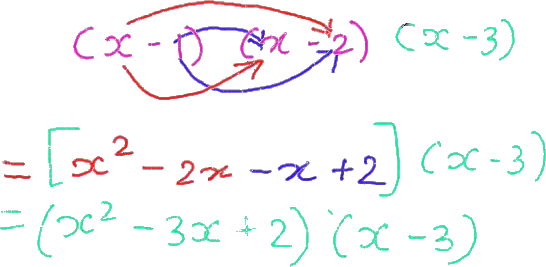 (x - 1) (x - 2) (x - 3)
= [x² - 2x - x + 2] (x - 3)
= (x² - 3x + 2) (x - 3)